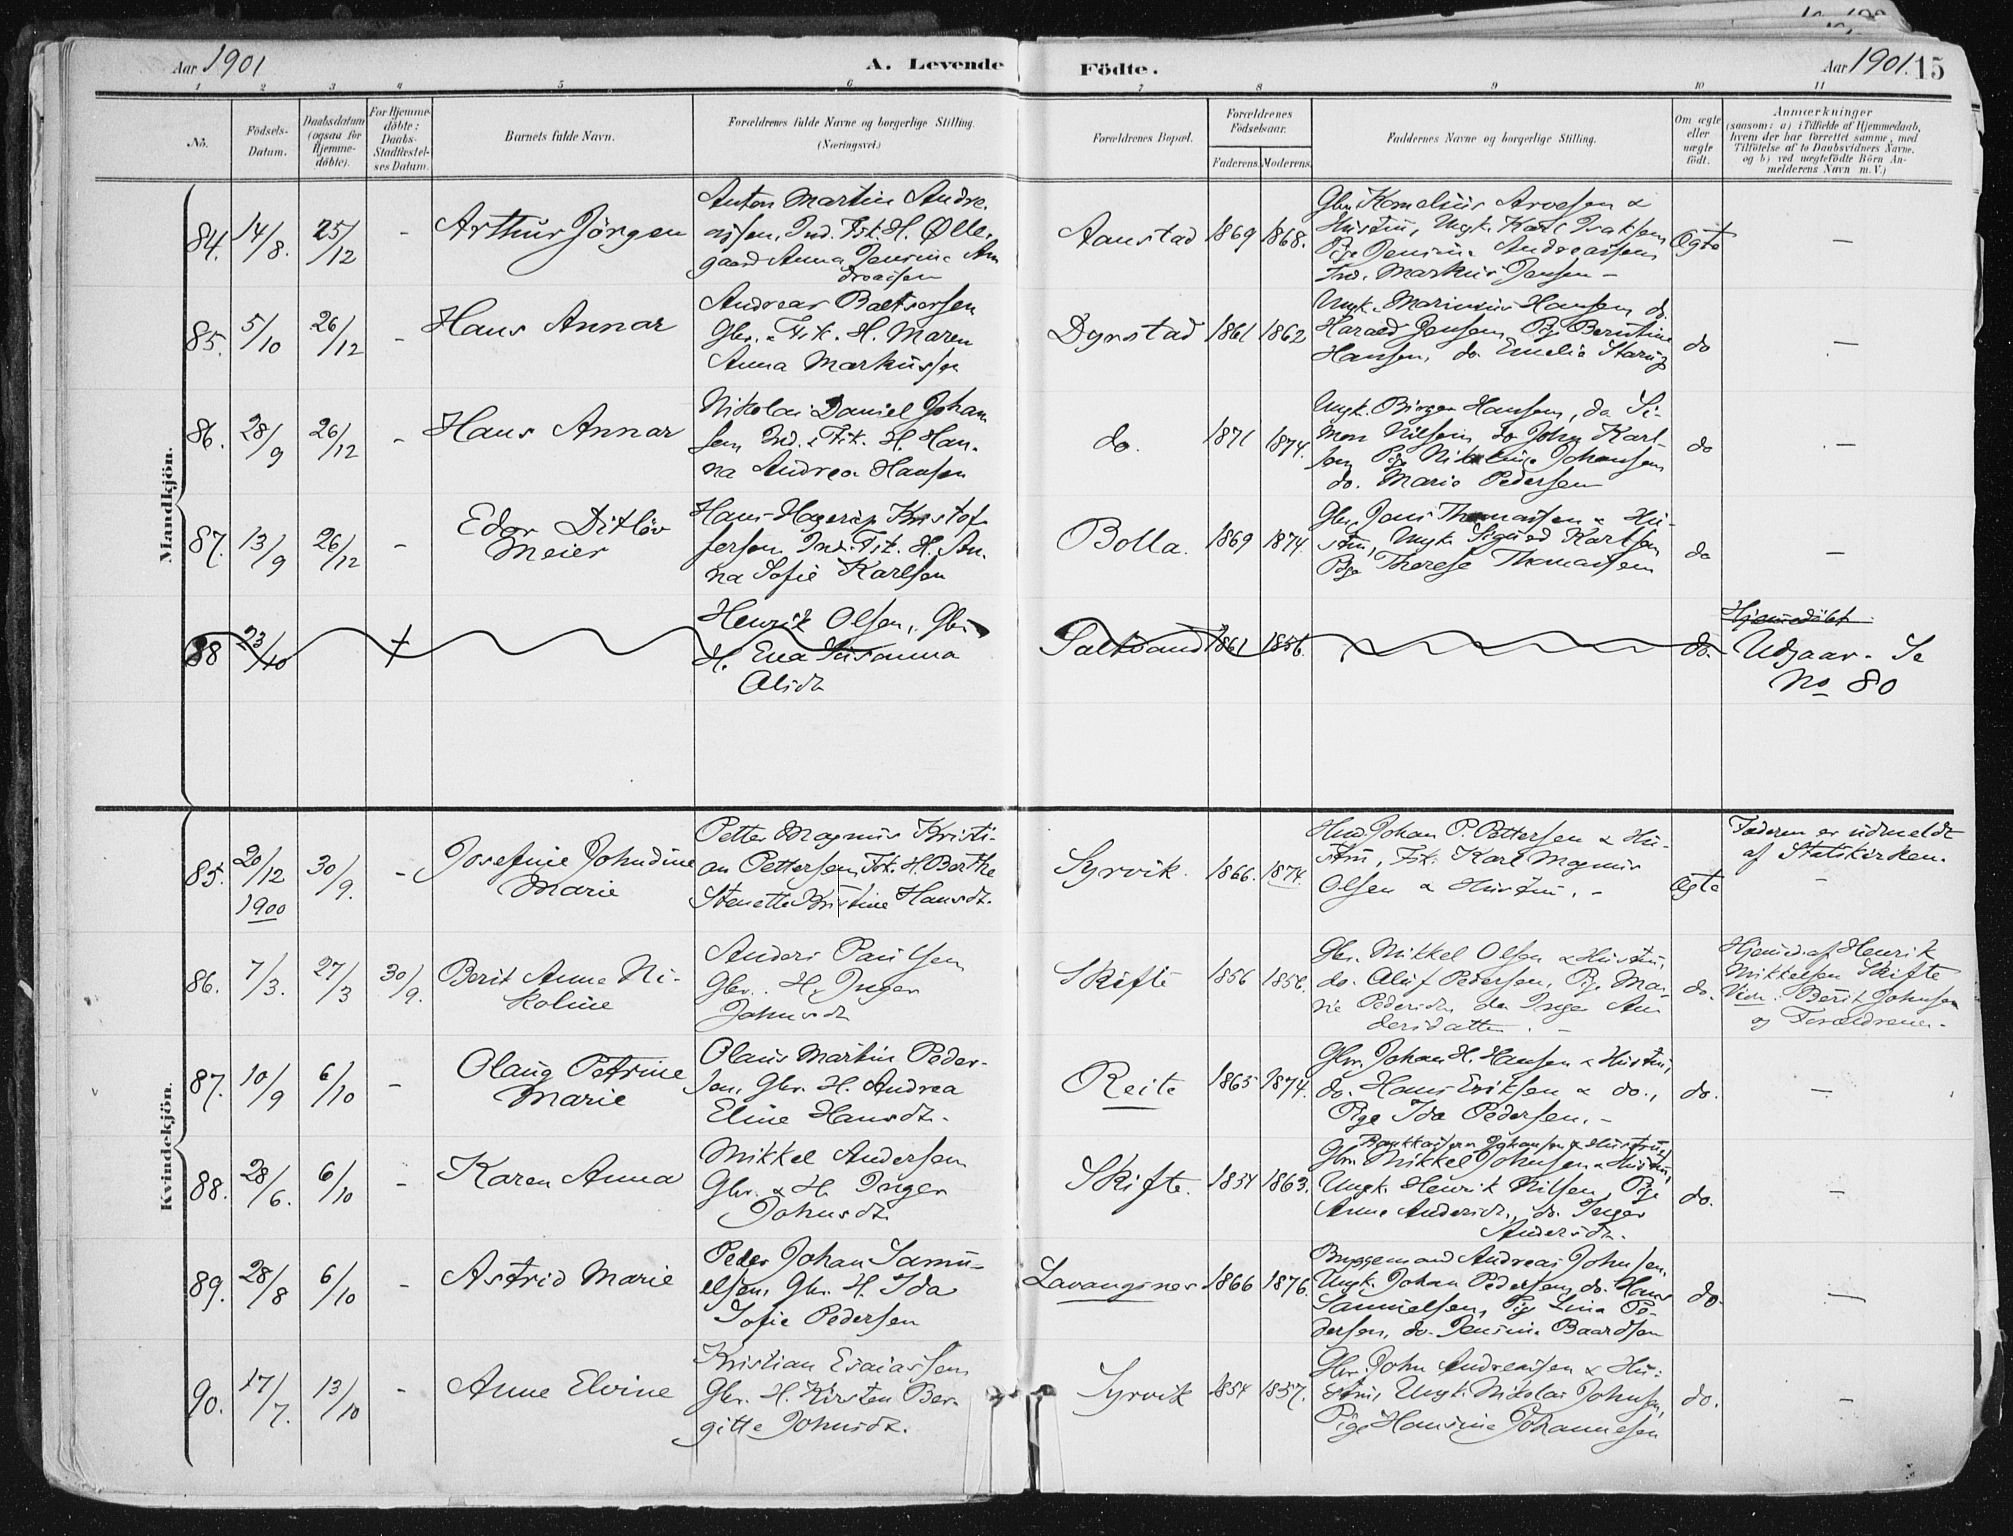 Aar 1901
A. Levende
Födte.
Aar 1901. 15
1 2 3 4 5 6 7 8 9 10 11
No.
Födsels-
Datum.
Daabsdatum
(ogsaa for
Hjemme-
döbte).
For Hjemme-
döbte:
Daabs-
Stadfæstel-
ses Datum.
Barnets fulde Navn.
Forældrenes fulde Navne og borgerlige Stilling.
(Næringsvei.)
Forældrenes Bopæl.
Forældrenes
Födselsaar.
Faderens. Moderens.
Faddernes Navne og borgerlige Stilling.
Om ægte
eller
uægte
födt.
Anmærkninger
(saasom: a) i Tilfælde af Hjemmedaab,
hvem der har forrettet samme, med
Tilföielse af to Daabsvidners Navne,
og b) ved uægtefödte Börn An-
melderens Navn m. V.)
Mandkjön.
84. 14/8. 25/12 - Arthur Jörgen
Anton Martin Andre-
assen, Ind. Fisk. H. Ølle-
gaard Anna Jensine An
dreassen
Aanstad 1869 1868.
Gbr. Kornelius Arvesen &
Hustru, Ungk. Karl Isaksen
Pige Jensine Andreassen
Ind. Markus Jensen -
Ægte -
85. 5/10 26/12 - Hans Annar
Andreas Baltsersen
Gbr. & Fisk. H. Maren
Anna Markussen
Dyrstad 1861 1862
Ungk. Marinius Hansen do.
Harald Jensen, Pige Berntine
Hansen, do. Emelie
do -
86. 28/9 26/12 - Hans Annar
Nikolai Daniel Johan
sen Ind. & Fisk. H. Han-
na Andrea Hansen
do. 1871 1874.
Ungk. Birger Hansen, do Si-
mon Nilsen, do John Karl-
sen Pige Nikoline Johansen
do. Marie Pedersen
do -
87. 13/9 26/12 - Edor Ditløv
Meier
Hans Hagerup Kristof-
fersen Ind. Fisk. H. An-
na Sofie Karlsen
Bolla. 1869 1874.
Gbr. Jens Thomassen & Hu-
stru, Ungk. Sigurd Karlsen
Pige Therese Thomassen
do -
88 23/10 +
Henrik Olsen, Gbr.
H. Eva Susanna
Olsdt
Saltvand 1861 1856. do.
Hjemmedöbt
Udgaar. Se
No 80
Kvindekjön.
85. 20/12 1900 30/9. - Josefine Johndine
Marie
Petter Magnus Kristi-
an Pettersen, Fisk. H. Berthe
Stenette Kristine Hansdt.
Syrvik. 1866. 1874.
Ind. Johan P. Pettersen & Hu-
stru, Fisk. Karl Magnus
Olsen & Hustru. -
Ægte
Faderen er udmeldt
af Statskirken.
-
86. 7/3. 27/3 30/9. Berit Anne Ni-
koline
Anders Paulsen
Gbr. H. Inger
Johnsdt
Skifte 1856 1856.
Gbr. Mikkel Olsen & Hustru,
do. Oluf Pedersen, Pige Ma-
rie Pedersdt. do Inger An
dersdatter. -
do.
Hjemd. af Henrik
Mikkelsen Skifte
Vidn. Berit Johnsen
og Forældrene.
87. 10/9 6/10 - Olaug Petrine
Marie
Olaus Martin Peder-
sen, Gbr. H. Andrea
Eline Hansdt.
Reite 1865 1874.
Gbr. Johan H. Hansen & Hustru,
do. Hans Eriksen & do.,
Pige Ida Pedersen. -
do. -
88. 28/6. 6/10 - Karen Anna
Mikkel Andersen
Gbr. & H. Inger
Johnsdt.
Skifte. 1854 1863.
Johansen & Hustru,
Gbr. Mikkel Johnsen & Hustru,
Ungk. Henrik Nilsen, Pige
Anne Andersdt., do. Inger
Andersdt.
do. -
89. 28/8 6/10 - Astrid Marie
Peder Johan Samu-
elsen, Gbr. H. Ida
Sofie Pedersen
Lavangsnes 1866 1876.
Byggemand Andreas Johnsen,
Ungk. Johan Pedersen, do. Hans
Samuelsen, Pige Lina Pe-
dersen, do. Jensine Baardsen
do. -
90. 17/7. 13/10 - Anne Elvine
Kristian Esaiassen
Gbr. H. Kirsten Ber-
gitte Johnsdt.
Syrvik 1854 1857.
Gbr. John Andreassen & Hu-
stru, Ungk. Nikolai Johnsen,
Pige Hansine Johannesen
do. -